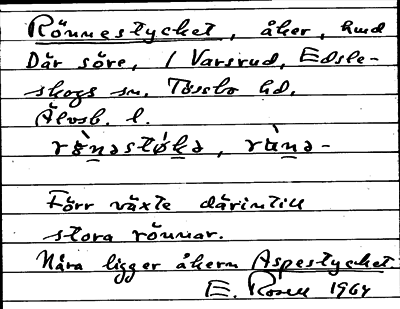 Rönnestycket, åker, hmd
Där söre, / Varsrud, Edsle-
skogs sn. Tössbo hd.
Älvsb. l.
rø̀nəstø̀kə, rùnə-
Förr växte därintill
stora rönnar.
Nära ligger åkern Aspestycket.
E. Rosell 1964